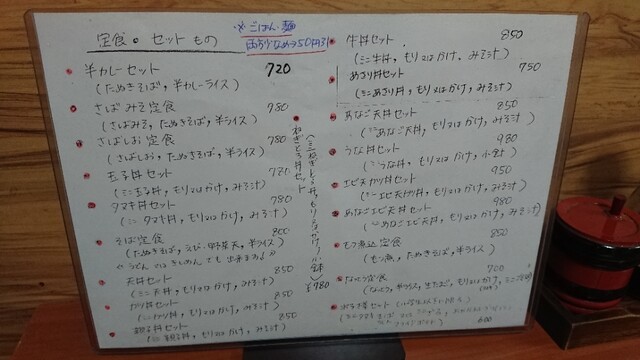 定食・セットもの
※ ごはん・麺
半カレーセット 720
(たぬきそば, 半カレーライス)
さばみそ定食 780
(さばみそ, たぬきそば, 半ライス)
さばしお定食 780
(さばしお, たぬきそば, 半ライス)
玉子丼セット 720
(ミニ玉子丼, もり又はかけ, みそ汁)
タマキ丼セット 780
(ミニタマキ丼, もり又はかけ, みそ汁)
そば定食 800
(たぬきそば, えび・野菜天, 半ライス)
天丼セット 850
(ミニ天丼, もり又はかけ, みそ汁)
カツ丼セット 850
(ミニカツ丼, もり又はかけ, みそ汁)
親子丼セット 850
(ミニ親子丼, もり又はかけ, みそ汁)
ねぎとろ丼セット
(ミニねぎとろ丼, もり又はかけ, 小鉢) ¥980
牛丼セット 850
(ミニ牛丼, もり又はかけ, みそ汁)
あさり丼セット 750
(ミニあさり丼, もり又はかけ, みそ汁)
あなご天丼セット 850
(ミニあなご天丼, もり又はかけ, みそ汁)
うな丼セット 980
(ミニうな丼, もり又はかけ, 小鉢)
エビ天カツ丼セット 950
(ミニエビ天カツ丼, もり又はかけ, みそ汁)
あなごエビ天丼セット 980
(ミニあなごエビ天丼, もり又はかけ, みそ汁)
もつ煮込定食 850
(もつ煮, たぬきそば, 半ライス)
なっとう定食 700
お子様セット
600